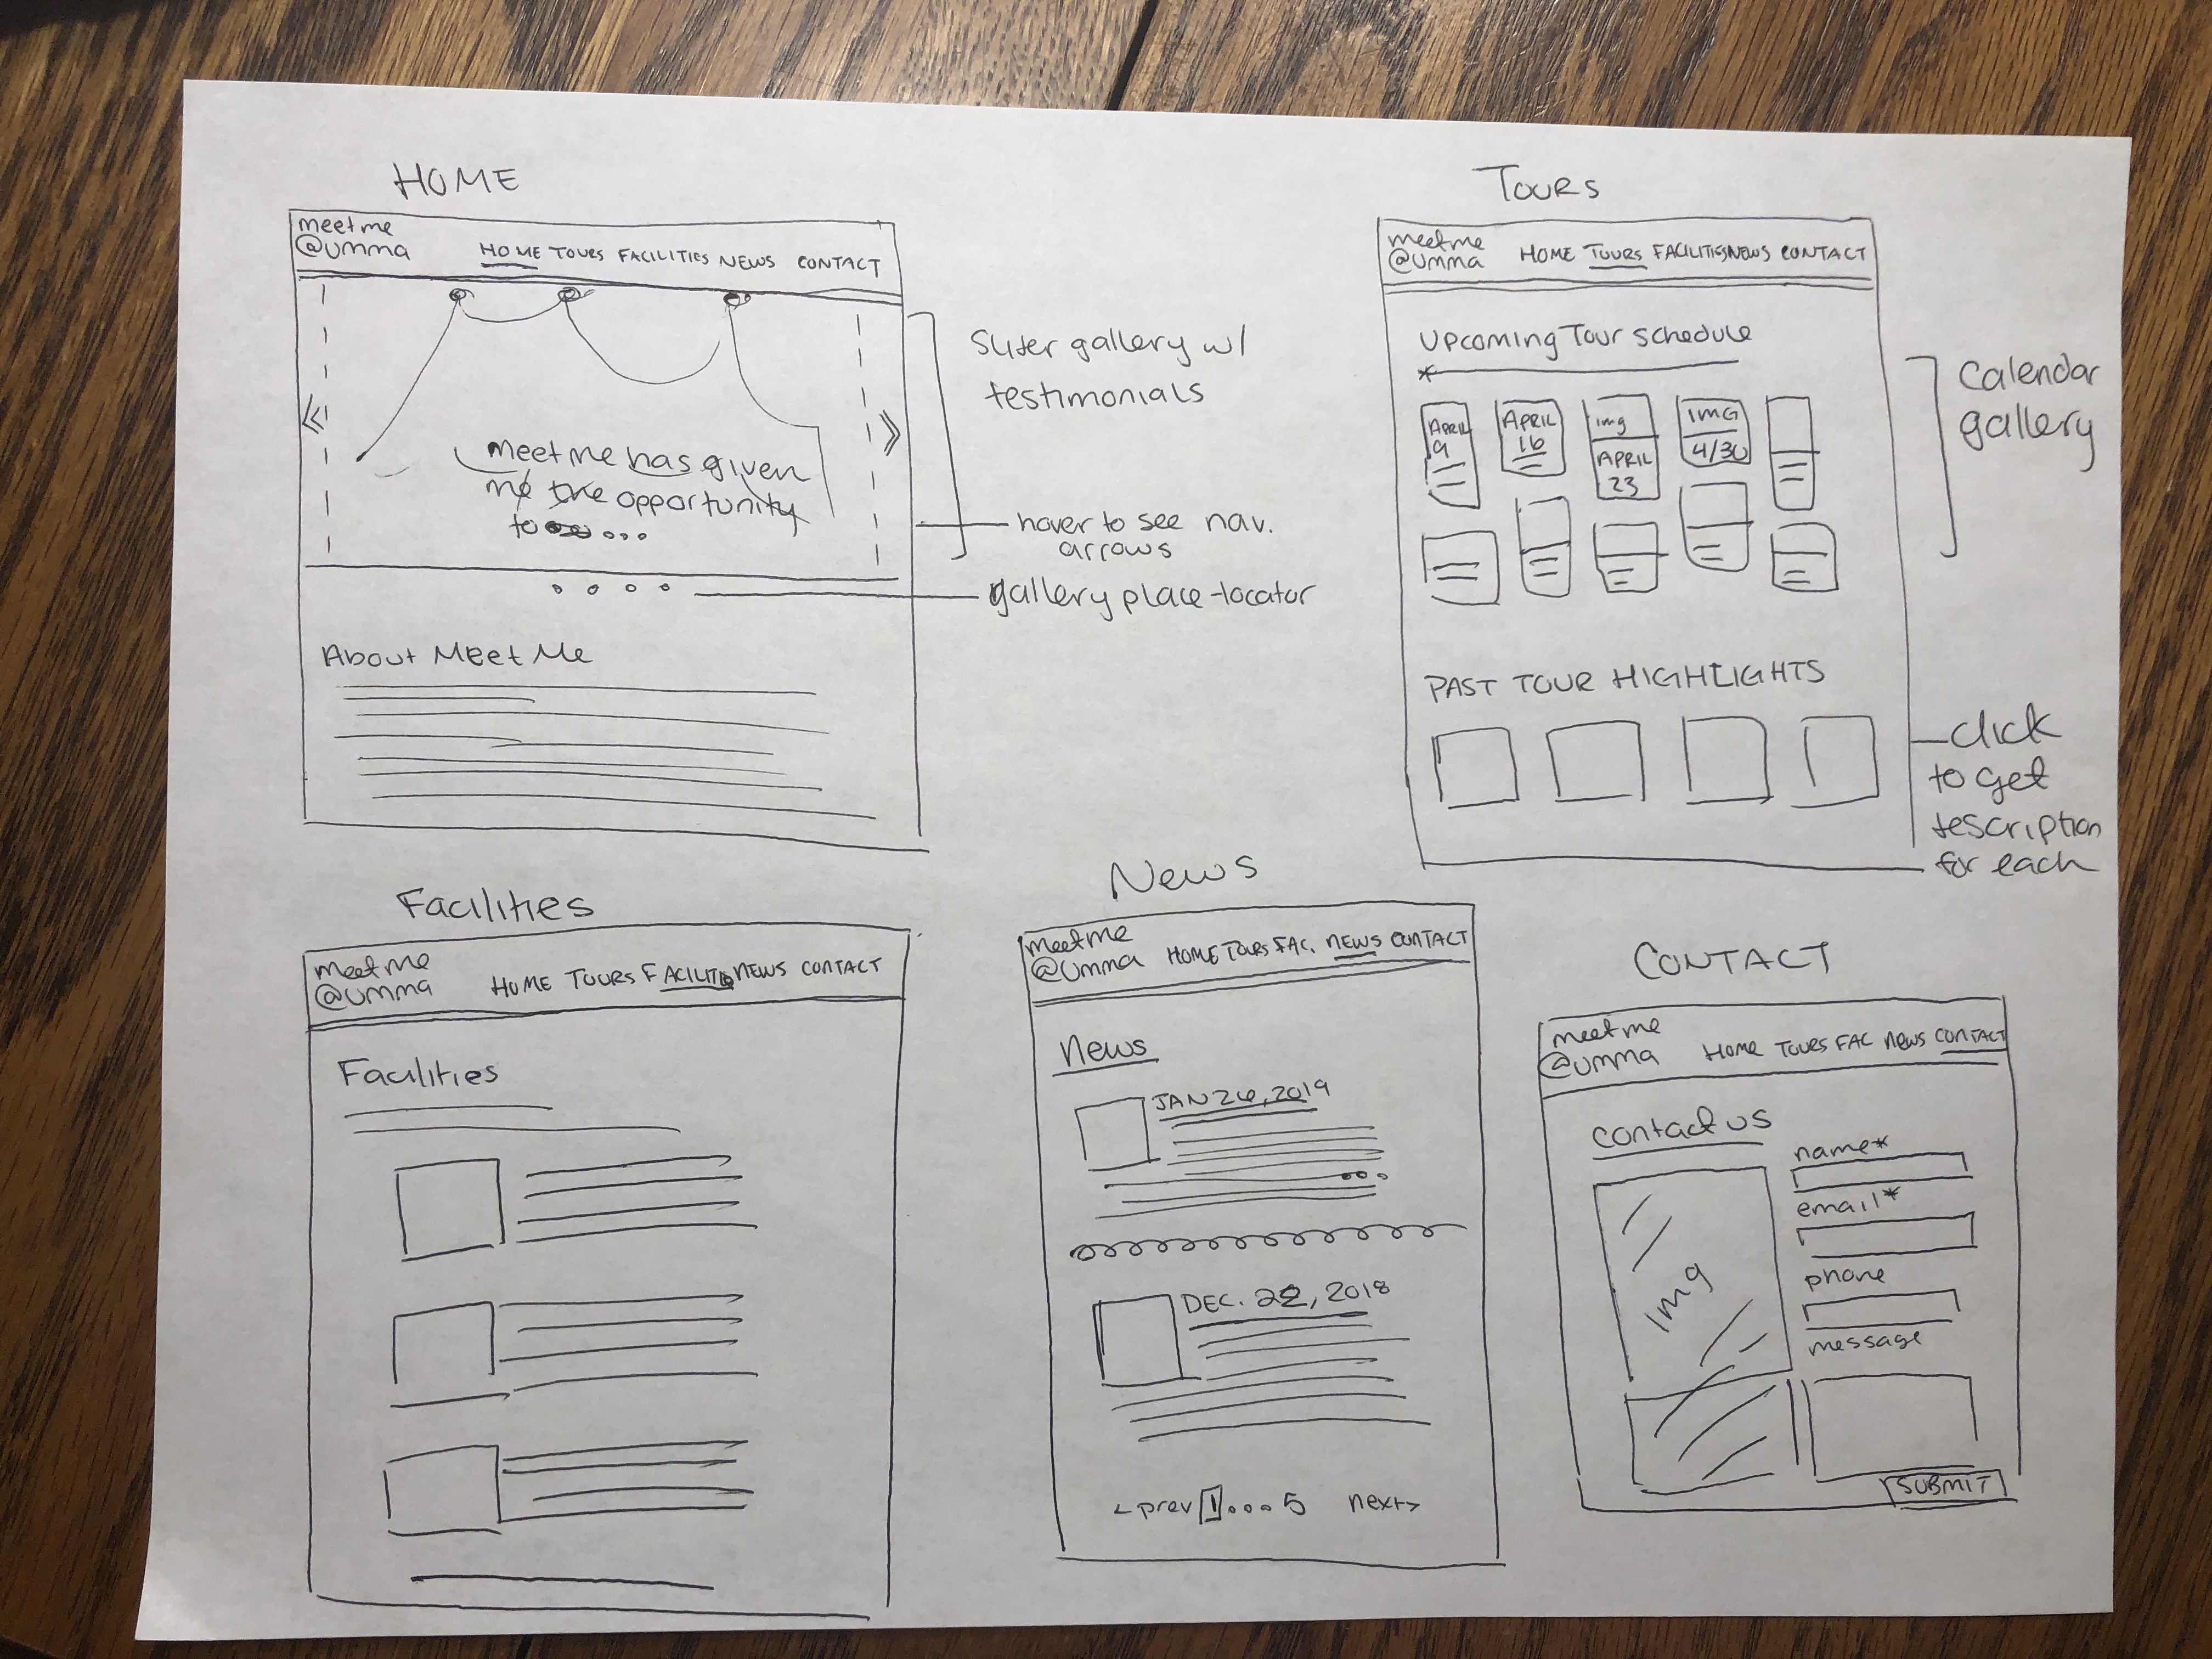 HOME
meet me
@umma
HOME TOURS FACILITIES NEWS CONTACT
<<
>>
meet me has given
me the opportunity
to ...
About Meet Me
Slider gallery w/
testimonials
hover to see nav.
arrows
gallery place-locator
TOURS
meet me
@umma
HOME TOURS FACILITIES NEWS CONTACT
Upcoming Tour Schedule
*
APRIL
9
APRIL
16
img
APRIL
23
IMG
4/30
PAST TOUR HIGHLIGHTS
Calendar
gallery
click
to get
description
for each
Facilities
meet me
@umma
HOME TOURS FACILITIES NEWS CONTACT
Facilities
News
meet me
@umma
HOME TOURS FAC. NEWS CONTACT
News
JAN 26, 2019
...
DEC. 22, 2018
< prev 1 ... 5 next >
CONTACT
meet me
@umma
HOME TOURS FAC NEWS CONTACT
contact us
img
name*
email*
phone
message
SUBMIT